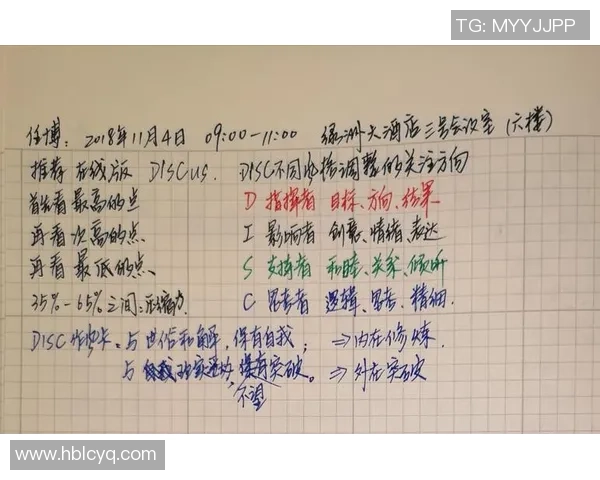 TG: MYYJJPP
任博: 2018年11月4日 09:00-11:00 绿洲大酒店三号会议室 (六楼)
推荐在线版 DISCus. DISC不同风格调整的关注方向
首先看最高的点 D 指挥者 目标、方向、结果
再看次高的点、 I 影响者 创意、情绪、表达
再看最低的点、 S 支持者 和睦、关系、倾听
35%-65%之间: 压缩 C 思考者 逻辑、思考、精细.
DISC 与世俗和解, 保有自我; ⇒内在修炼.
与 突破。 ⇒外在突破
不望
www.hblcyq.com